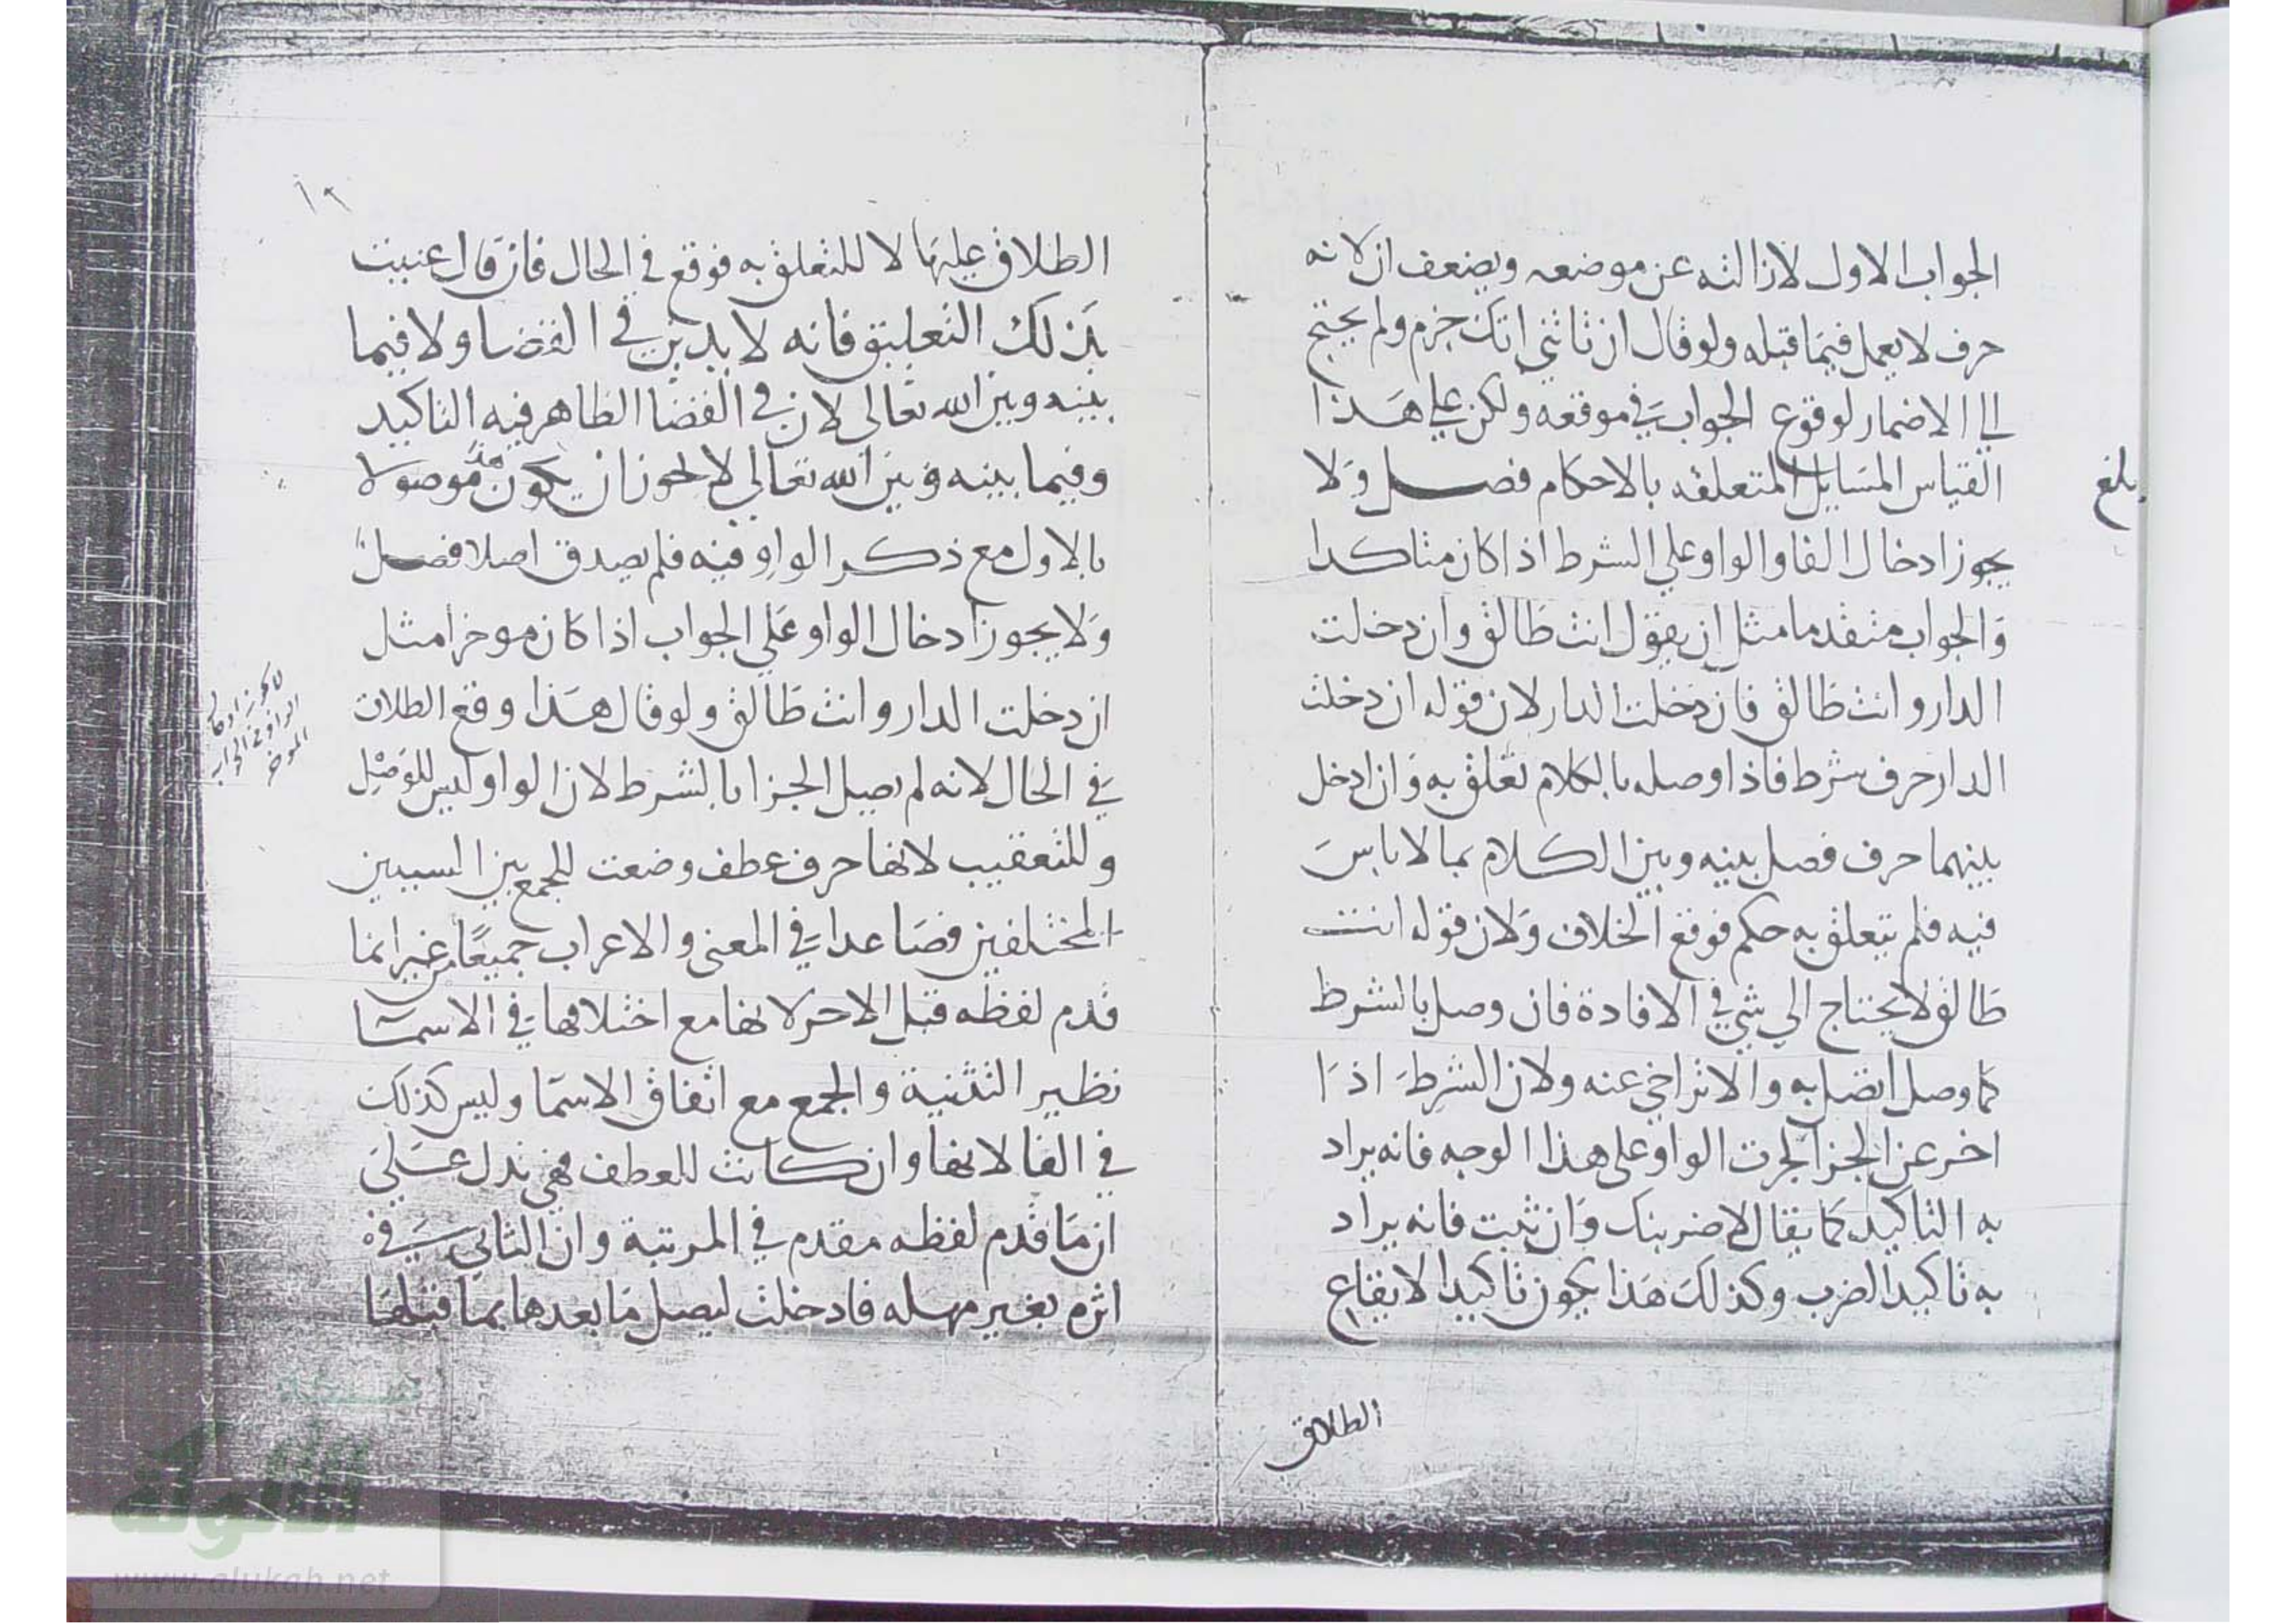 الجواب الاول لازالته عن موضعه ويضعف ان لانه
حرف لا يعمل فيما قبله ولو قال ان تاتني اتك جزم ولم يحتج
الي الاضمار لوقوع الجواب في موقعه ولكن علي هذا
القياس المسايل المتعلقه بالاحكام فصل ولا
يجوز ادخال الفا والواو علي الشرط اذا كان متاكدا
والجواب متقدما مثل ان يقول انت طالق وان دخلت
الدار وانت طالق فان دخلت الدار لان قوله ان دخلت
الدار حرف شرط فاذا وصله بالكلام تعلق به وان ادخل
بينهما حرف فصل بينه وبين الكلام بما لا باس
فيه فلم يتعلق به حكم فوقع الخلاف ولان قوله انت
طالق لا يحتاج الي شي في الافادة فان وصل بالشرط
كما وصل اتصل به والا تراخي عنه ولان الشرط اذا
اخر عن الجزا لجرت الواو على هذا الوجه فانه يراد
به التاكيد كما يقال لاضربنك وان تبت فانه يراد
به تاكيد الضرب وكذلك هذا يجوز تاكيدا لايقاع
الطلاق
بلغ
١٢
الطلاق عليها لا للتعلق به فوقع في الحال فان قال عنيت
بذلك التعليق فانه لا يدين في القضا ولا فيما
بينه وبين الله تعالى لان في القضا الظاهر فيه التاكيد
وفيما بينه وبين الله تعالي لا يجوز ان يكون هذا موصولا
بالاول مع ذكر الواو فيه فلم يصدق اصلا فصل
ولا يجوز ادخال الواو علي الجواب اذا كان موخرا مثل
ان دخلت الدار وانت طالق ولو قال هذا وقع الطلاق
في الحال لانه لم يصل الجزا بالشرط لان الواو ليس للوصل
وللتعقيب لانها حرف عطف وضعت للجمع بين السببين
المختلفين فصاعدا في المعنى والاعراب جميعا من غير انما
قدم لفظه قبل الاخر لانها مع اختلافها في الاسما
نظير التثنية والجمع مع اتفاق الاسما وليس كذلك
في الفا لانها وان كانت للعطف فهي تدل علي
ان ما قدم لفظه مقدم في المرتبة وان الثاني في
اثره بغير مهله فادخلت ليصل ما بعدها بما قبلها
لا يجوز ادخال
الواو على الجواب
الموخر
الألوكة
www.alukah.net